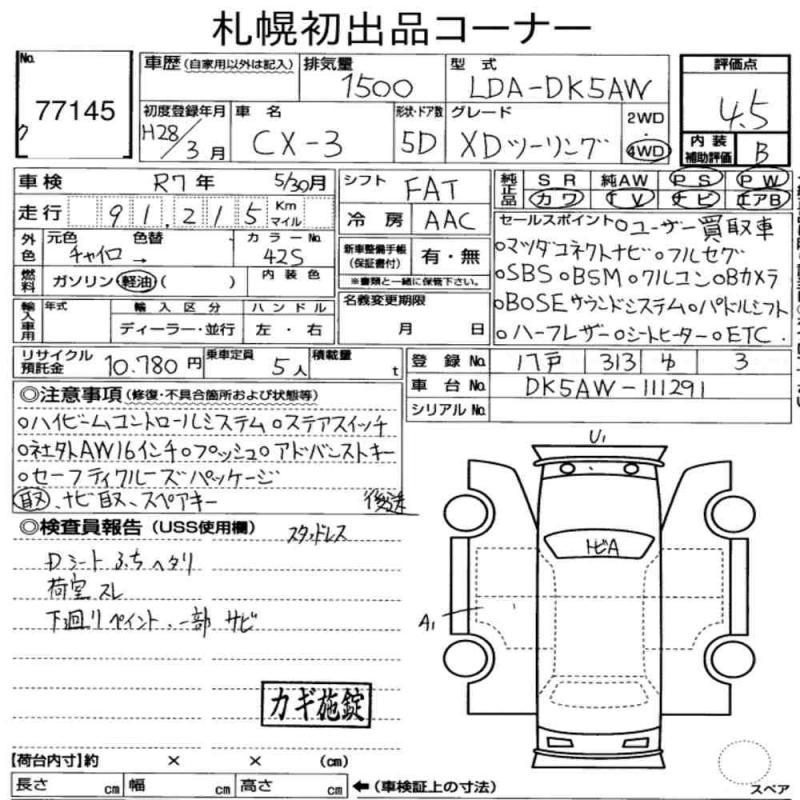 札幌初出品コーナー
No. 77145 ク
車歴 (自家用以外は記入) 排気量 1500 型式 LDA-DK5AW 評価点 4.5
初度登録年月 H28/3月 車名 CX-3 形状・ドア数 5D グレード XDツーリング 2WD 4WD 内装補助評価 B
車検 R7年 5/30月 シフト FAT 純正品 SR 純AW PS PW
走行 91,215 Km マイル 冷房 AAC カワ TV ナビ エアB
外色 元色 チャイロ → 色替 カラーNo. 42S 新車整備手帳 (保証書付) 有・無
※書類と一緒に保管下さい。
燃料 ガソリン 軽油 ( ) 内装色
セールスポイント ○ユーザー買取車
○マツダコネクトナビ ○フルセグ
○SBS ○BSM ○クルコン ○Bカメラ
○BOSEサウンドシステム ○パドルシフト
○ハーフレザー ○シートヒーター ○ETC.
輸入車用 年式 輸入区分 ディーラー・並行 ハンドル 左・右 名義変更期限 月 日
リサイクル預託金 10.780円 乗車定員 5人 積載量 t
登録No. 八戸 313 ゆ 3
車台No. DK5AW-111291
シリアルNo.
◎注意事項 (修復・不具合箇所および状態等)
○ハイビームコントロールシステム ○ステアスイッチ
○社外AW16インチ ○プッシュ ○アドバンストキー
○セーフティクルーズパッケージ
取又、ナビ取又、スペアキー 後送
◎検査員報告 (USS使用欄) スタッドレス
Dシートふちヘタリ
荷室スレ
下廻りペイント、一部サビ
カギ施錠
U1
トビA
A1
【荷台内寸】約 × × (cm)
長さ cm 幅 cm 高さ cm ←(車検証上の寸法)
スペア